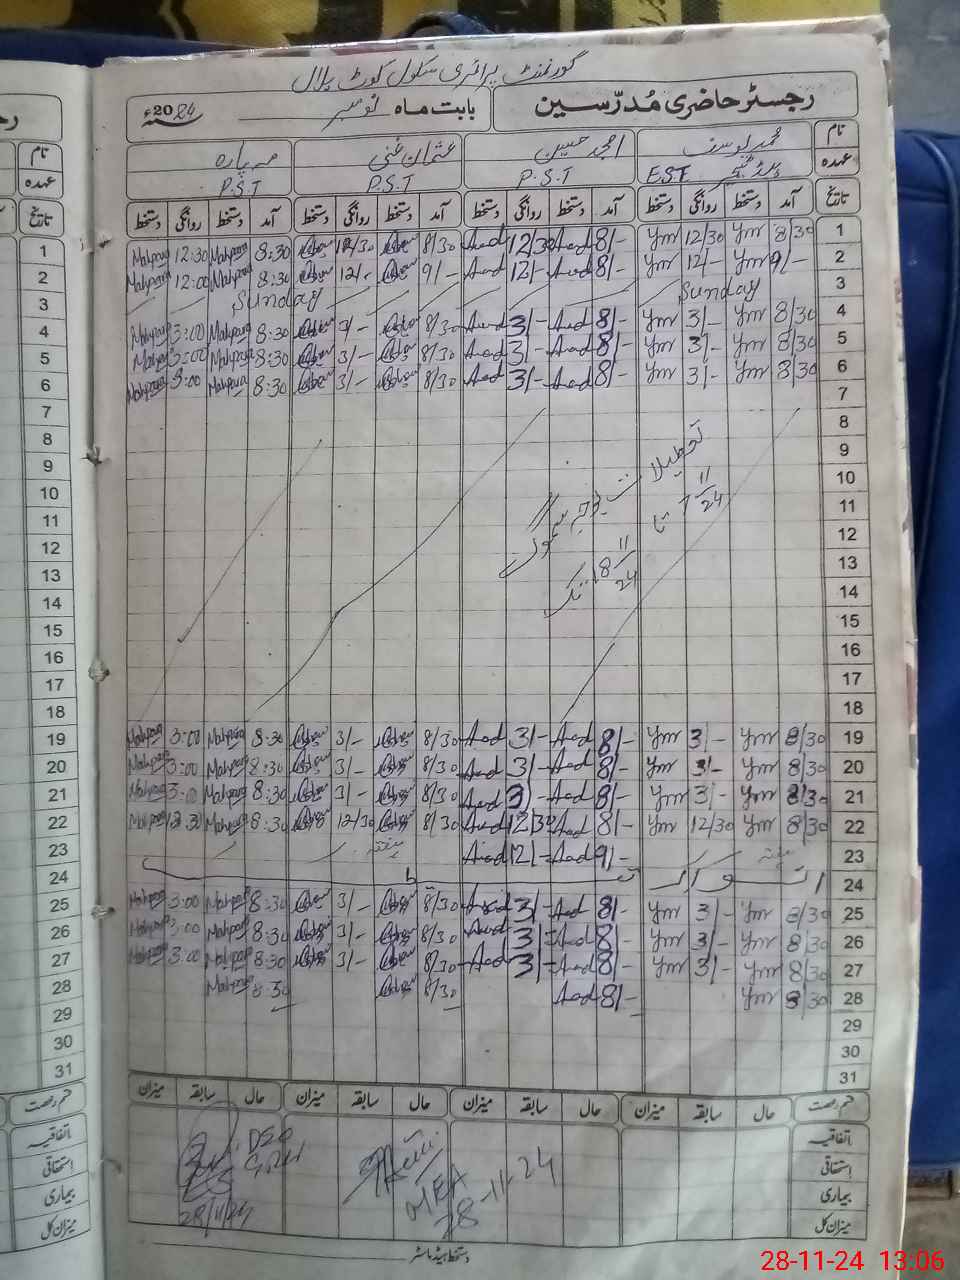 گورنمنٹ پرائمری سکول کوٹ بلال
رجسٹر حاضری مُدرّسین بابت ماہ نومبر 2024ء
نام محمد یوسف امجد حسین عثمان غنی مہ پارہ
عہدہ E.S.T P.S.T P.S.T P.S.T
تاریخ آمد دستخط روانگی دستخط آمد دستخط روانگی دستخط آمد دستخط روانگی دستخط آمد دستخط روانگی دستخط
1 8/30 Ym 12/30 Ym 8/- Aad 12/30 Aad 8/30 12/30 8:30 Mahpara 12:30 Mahpara
2 9/- Ym 12/- Ym 8/- Aad 12/- Aad 9/- 12/- 8:30 Mahpara 12:00 Mahpara
3 Sunday Sunday
4 8/30 Ym 3/- Ym 8/- Aad 3/- Aad 8/30 3/- 8:30 Mahpara 3:00 Mahpara
5 8/30 Ym 3/- Ym 8/- Aad 3/- Aad 8/30 3/- 8:30 Mahpara 3:00 Mahpara
6 8/30 Ym 3/- Ym 8/- Aad 3/- Aad 8/30 3/- 8:30 Mahpara 3:00 Mahpara
7
8
9
10
11
12
13
14
15
16
17
18
تعطیلات بوجہ سموگ
7 11/24 تا
18 11/24 تک
19 8/30 Ym 3/- Ym 8/- Aad 3/- Aad 8/30 3/- 8:30 Mahpara 3:00 Mahpara
20 8/30 Ym 3/- Ym 8/- Aad 3/- Aad 8/30 3/- 8:30 Mahpara 3:00 Mahpara
21 8/30 Ym 3/- Ym 8/- Aad 3/- Aad 8/30 3/- 8:30 Mahpara 3:00 Mahpara
22 8/30 Ym 12/30 Ym 8/- Aad 12/30 Aad 8/30 12/30 8:30 Mahpara 12:30 Mahpara
23 ہفتہ 9/- Aad 12/- Aad ہفتہ
24 اتوار
25 8/30 Ym 3/- Ym 8/- Aad 3/- Aad 8/30 3/- 8:30 Mahpara 3:00 Mahpara
26 8/30 Ym 3/- Ym 8/- Aad 3/- Aad 8/30 3/- 8:30 Mahpara 3:00 Mahpara
27 8/30 Ym 3/- Ym 8/- Aad 3/- Aad 8/30 3/- 8:30 Mahpara 3:00 Mahpara
28 8/30 Ym 8/- Aad 8/30 8:30 Mahpara
29
30
31
قسم رخصت حال سابقہ میزان حال سابقہ میزان حال سابقہ میزان حال سابقہ میزان
اتفاقیہ
استحقاقی
بیماری
میزان کل
MEA
28-11-24
28/11/24
دستخط ہیڈ ماسٹر
نام
عہدہ
تاریخ
1
2
3
4
5
6
7
8
9
10
11
12
13
14
15
16
17
18
19
20
21
22
23
24
25
26
27
28
29
30
31
قسم رخصت
اتفاقیہ
استحقاقی
بیماری
میزان کل
28-11-24 13:06